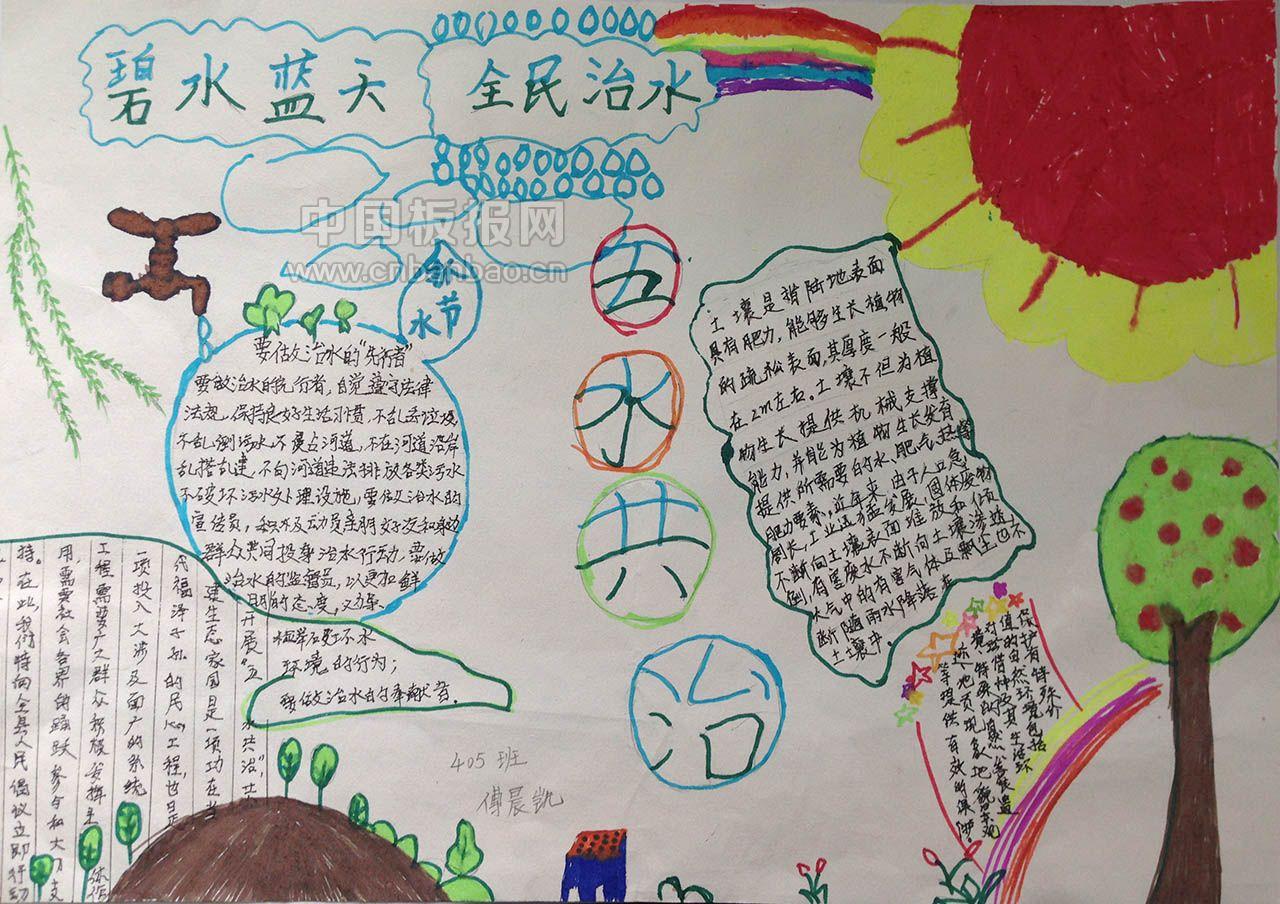 碧水蓝天
全民治水
中国板报网
www.cnbanbao.cn
水节
五
水
共
治
要做治水的“先行者”
要做治水的先行者，自觉遵守法律
法规，保持良好生活习惯，不乱丢垃圾
不乱倒污水，不侵占河道，不在河道沿岸
乱搭乱建，不向河道违法排放各类污水
不破坏治水处理设施，要做治水的
宣传员，积极发动员亲朋好友和身边
群众共同投身治水行动，要做
治水的监督员，以更加鲜
明的态度，
环境的行为；
要做治水的奉献者。
土壤是指陆地表面
具有肥力，能够生长植物
的疏松表面，其厚度一般
在2m左右。土壤不但为植
物生长提供机械支撑
能力，并能为植物生长发育
提供所需要的水、肥、气、热等
肥力要素，近年来，由于人口急
剧长，工业迅猛发展，固体废物
不断向土壤表面堆放和倾
倒，有害废水不断向土壤渗透
大气中的有害气体及飘尘也不
断随雨水降落在
土壤中。
保护有特殊价
值的自然环境包括
对珍惜物种及其生活环
境、特殊的自然发展史遗
迹、地质现象、地貌景观
等提供有效的保护。
开展“五
水共治”，共
建生态家园是一项功在当
代福泽子孙的民心工程，也是
一项投入大涉及面广的系统
工程需要广大群众积极发挥主体作
用，需要社会各界的踊跃参与和大力支
持。在此，我们特向全县人民倡议立即行动
405班
傅晨凯